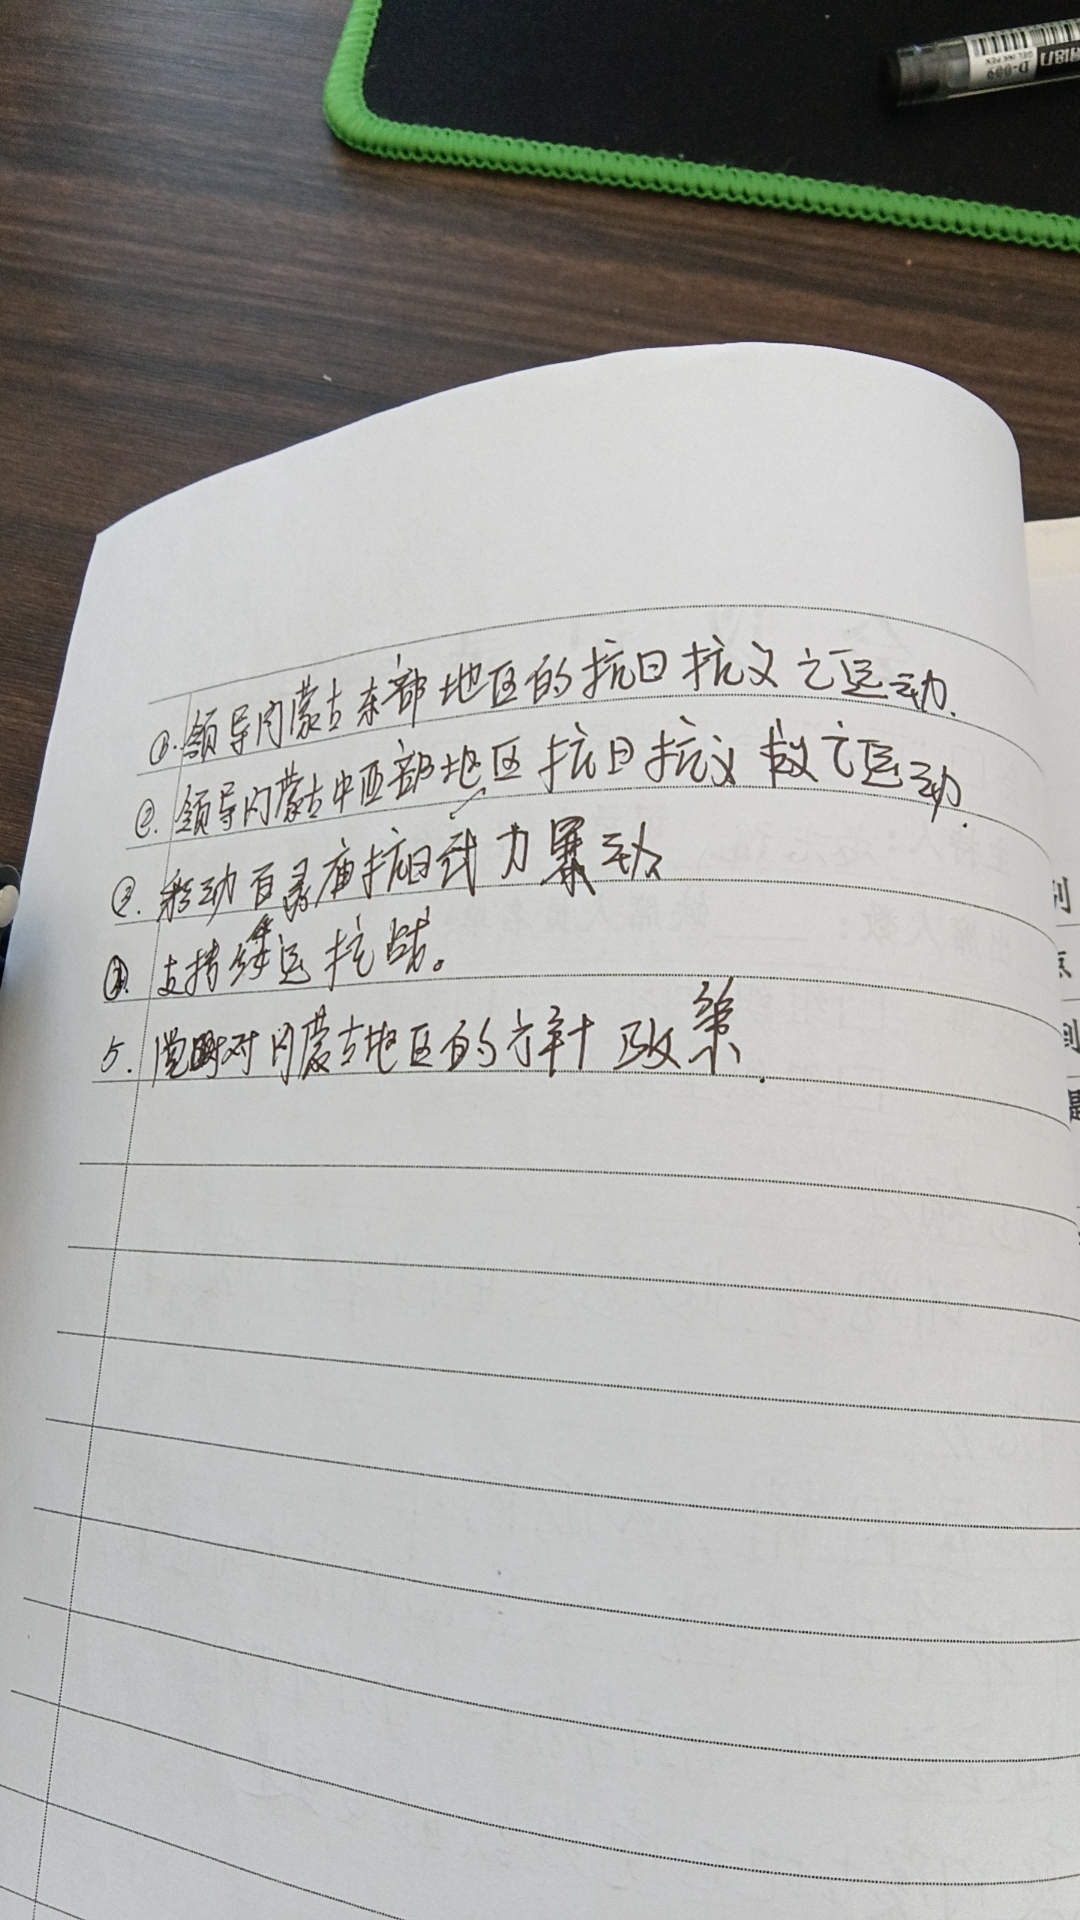 D-009
GEL INK PEN
①.领导内蒙古东部地区的抗日抗义亡运动.
②.领导内蒙古中西部地区抗日抗义救亡运动.
③.动百灵庙抗日武力暴动
④.支持绥远抗战。
5.党对内蒙古地区的方针政策.